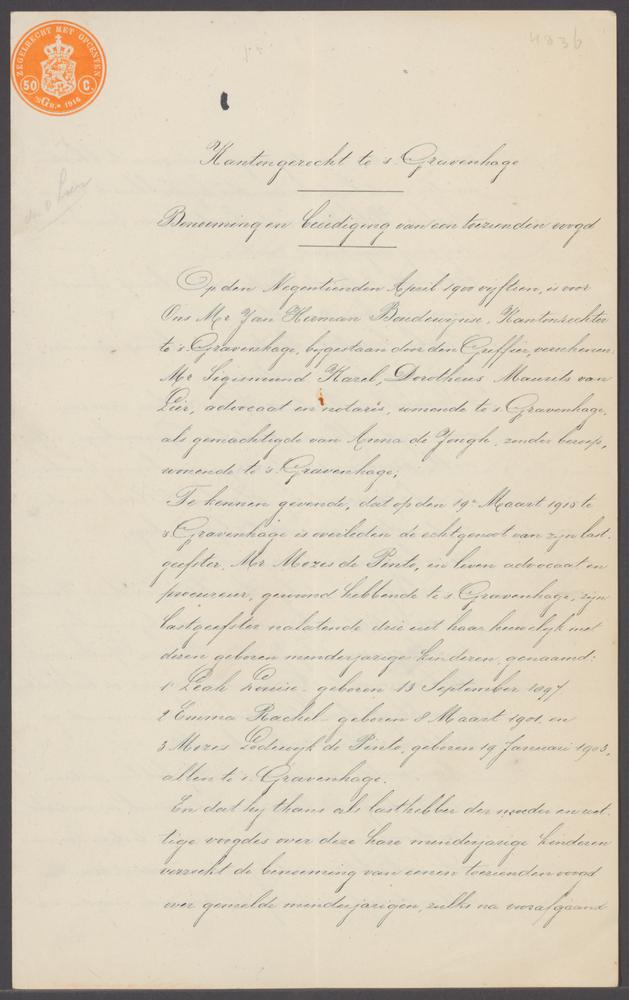 ZEGELRECHT MET OPCENTEN
50 C.
'sGR. 1916
4836
Kantongerecht te 's Gravenhage
Benoeming en beëediging van een toezienden voogd
Op den Negentienden April 1900 vijftien, is voor
Ons Mr Jan Herman Boudewijnse, Kantonrechter
te 's Gravenhage, bijgestaan door den Griffier, verschenen:
Mr Sigismund Karel, Dorotheus Maurits van
Lier, advocaat en notaris, wonende te 's Gravenhage,
als gemachtigde van Anna de Jongh, zonder beroep,
wonende te 's Gravenhage;
Te kennen gevende, dat op den 19n Maart 1915 te
's Gravenhage is overleden de echtgenoot van zijn last-
geefster, Mr Mozes de Pinto, in leven advocaat en
procureur, gewoond hebbende te 's Gravenhage, zijn
lastgeefster nalatende drie uit haar huwelijk met
dezen geboren minderjarige kinderen, genaamd:
1 Leah Louise geboren 13 September 1897
2 Emma Rachel geboren 8 Maart 1901, en
3 Mozes Lodewijk de Pinto, geboren 19 Januari 1903,
allen te 's Gravenhage.
En dat hij thans als lasthebber der moeder en wet-
tige voogdes over deze hare minderjarige kinderen
verzoekt de benoeming van eenen toezienden voogd
over gemelde minderjarigen, zulks na voorafgaand